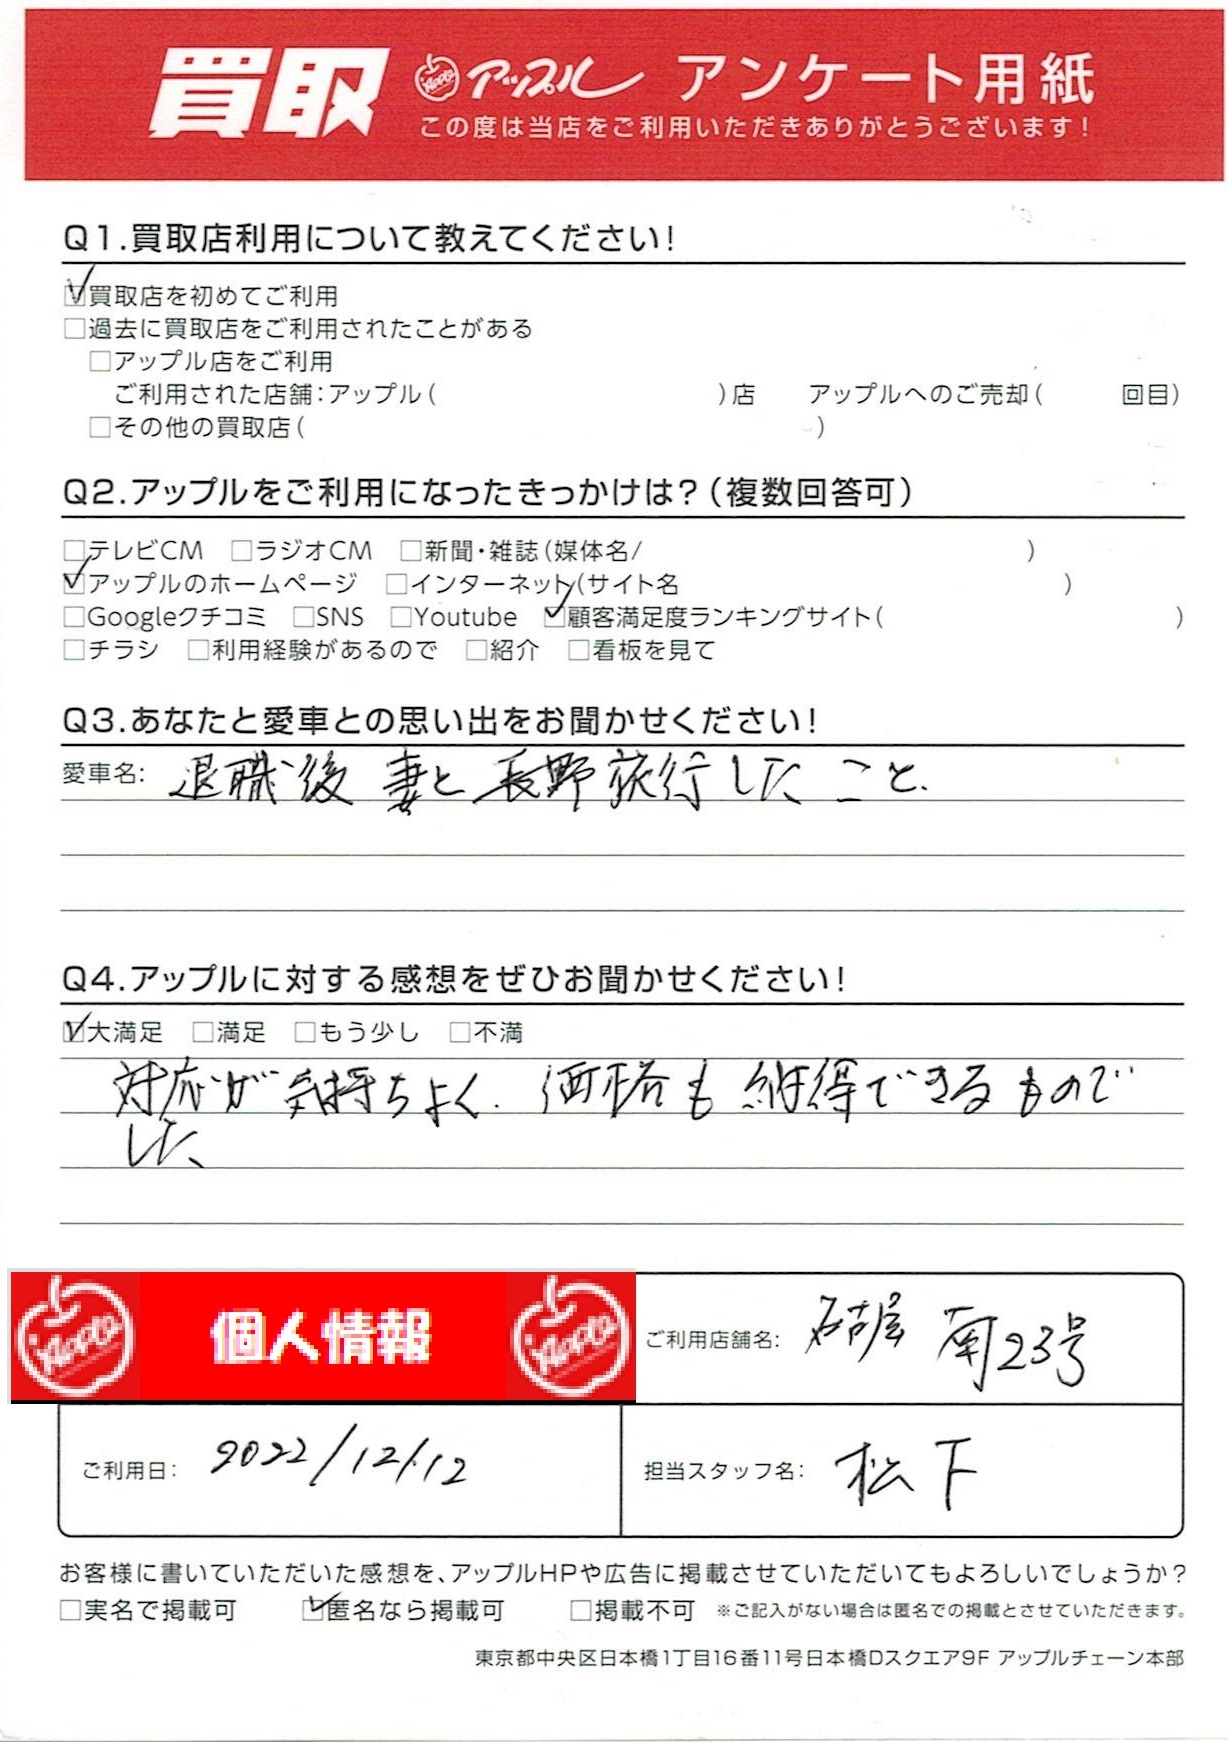 買取 アップル アンケート用紙
この度は当店をご利用いただきありがとうございます!
Q1.買取店利用について教えてください!
☑買取店を初めてご利用
□過去に買取店をご利用されたことがある
□アップル店をご利用
ご利用された店舗:アップル( )店 アップルへのご売却( 回目)
□その他の買取店( )
Q2.アップルをご利用になったきっかけは?(複数回答可)
□テレビCM □ラジオCM □新聞・雑誌(媒体名/ )
☑アップルのホームページ □インターネット(サイト名 )
□Googleクチコミ □SNS □Youtube ☑顧客満足度ランキングサイト( )
□チラシ □利用経験があるので □紹介 □看板を見て
Q3.あなたと愛車との思い出をお聞かせください!
愛車名: 退職後 妻と 長野旅行したこと.
Q4.アップルに対する感想をぜひお聞かせください!
☑大満足 □満足 □もう少し □不満
対応が気持ちよく. 価格も納得できるもので
した
Apple 個人情報 Apple
ご利用店舗名: 名古屋 南23号
ご利用日: 2022/12/12 担当スタッフ名: 松下
お客様に書いていただいた感想を、アップルHPや広告に掲載させていただいてもよろしいでしょうか?
□実名で掲載可 ☑匿名なら掲載可 □掲載不可 ※ご記入がない場合は匿名での掲載とさせていただきます。
東京都中央区日本橋1丁目16番11号日本橋Dスクエア9F アップルチェーン本部